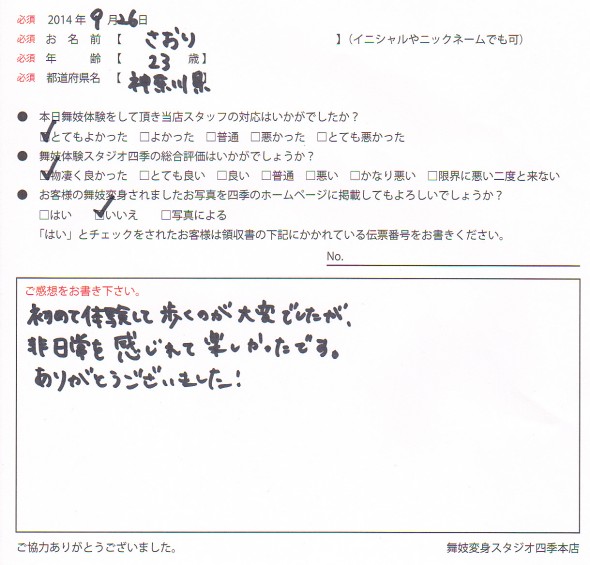 必須 2014年 9月26日
必須 お名前【 さおり 】(イニシャルやニックネームでも可)
必須 年齢【 23 歳】
必須 都道府県名【 神奈川県
● 本日舞妓体験をして頂き当店スタッフの対応はいかがでしたか?
☑とてもよかった □よかった □普通 □悪かった □とても悪かった
● 舞妓体験スタジオ四季の総合評価はいかがでしょうか?
☑物凄く良かった □とても良い □良い □普通 □悪い □かなり悪い □限界に悪い二度と来ない
● お客様の舞妓変身されましたお写真を四季のホームページに掲載してもよろしいでしょうか?
□はい ☑いいえ □写真による
「はい」とチェックをされたお客様は領収書の下記にかかれている伝票番号をお書きください。
No.
ご感想をお書き下さい。
初めて体験して歩くのが大変でしたが、
非日常を感じれて楽しかったです。
ありがとうございました!
ご協力ありがとうございました。 舞妓変身スタジオ四季本店